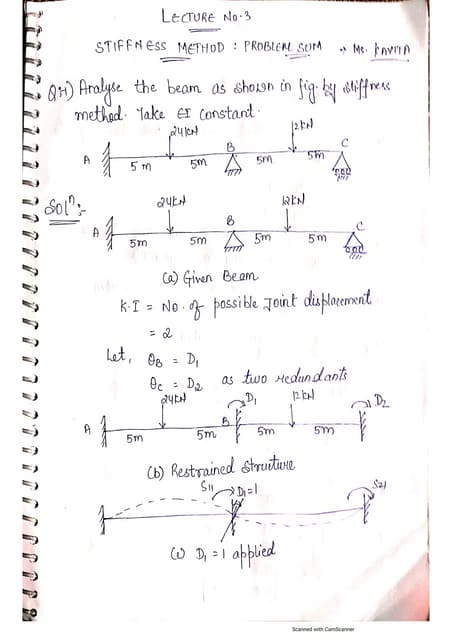 LECTURE NO.3
STIFFNESS METHOD : PROBLEM SUM → Ms. KAVITA
Q#1) Analyse the beam as shown in fig. by stiffness
method. Take EI constant.
24kN 12kN
A B C
5m 5m 5m 5m
Solⁿ:-
24kN 12kN
A B C
5m 5m 5m 5m
(a) Given Beam
K.I = No. of possible Joint displacement
= 2
Let, θB = D1
θC = D2 as two redundants
24kN D1 12kN D2
A B
5m 5m 5m 5m
(b) Restrained Structure
S11 D1=1 S21
(c) D1 = 1 applied
Scanned with CamScanner